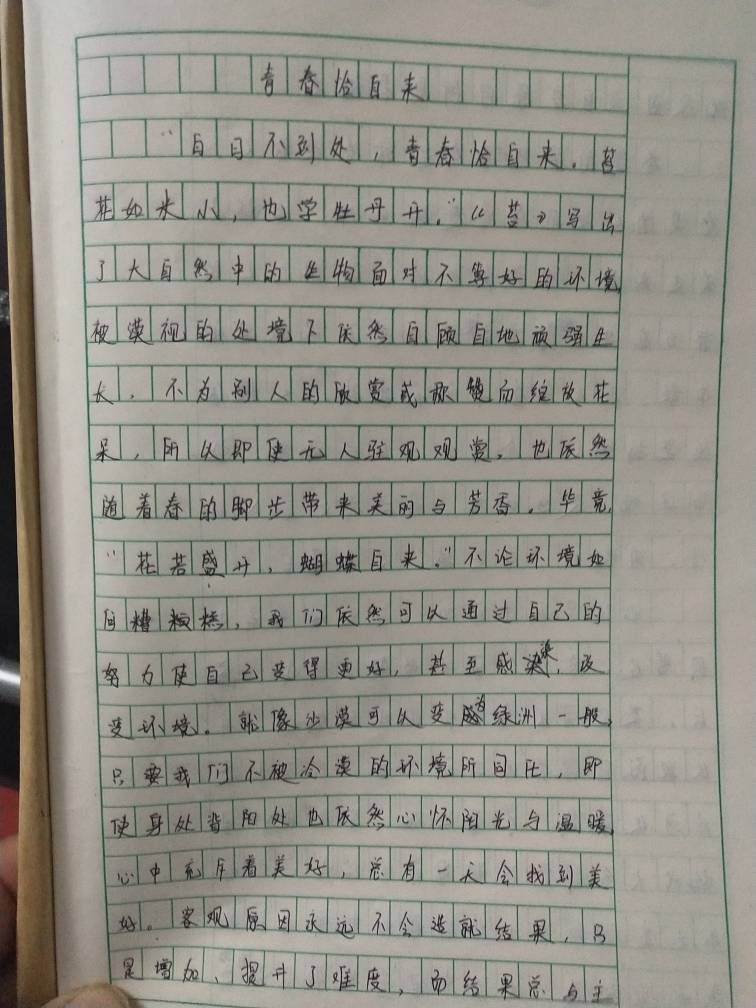 青春恰自来
“白日不到处，青春恰自来。苔
花如米小，也学牡丹开。”《苔》写出
了大自然中的生物面对不算好的环境，
被漠视的处境下依然自顾自地顽强生
长，不为别人的欣赏或歌赞而绽放花
朵，所以即使无人驻观观赏，也依然
随着春的脚步带来美丽与芳香。毕竟，
“花若盛开，蝴蝶自来。”不论环境如
何糟糕，我们依然可以通过自己的
努力使自己变得更好，甚至感染，改
变环境。就像沙漠可以变为绿洲一般，
只要我们不被冷漠的环境所同化，即
使身处背阳处也依然心怀阳光与温暖
心中充斥着美好，总有一天会找到美
好。客观原因永远不会造就结果，只
是增加、提升了难度，而结果总与主